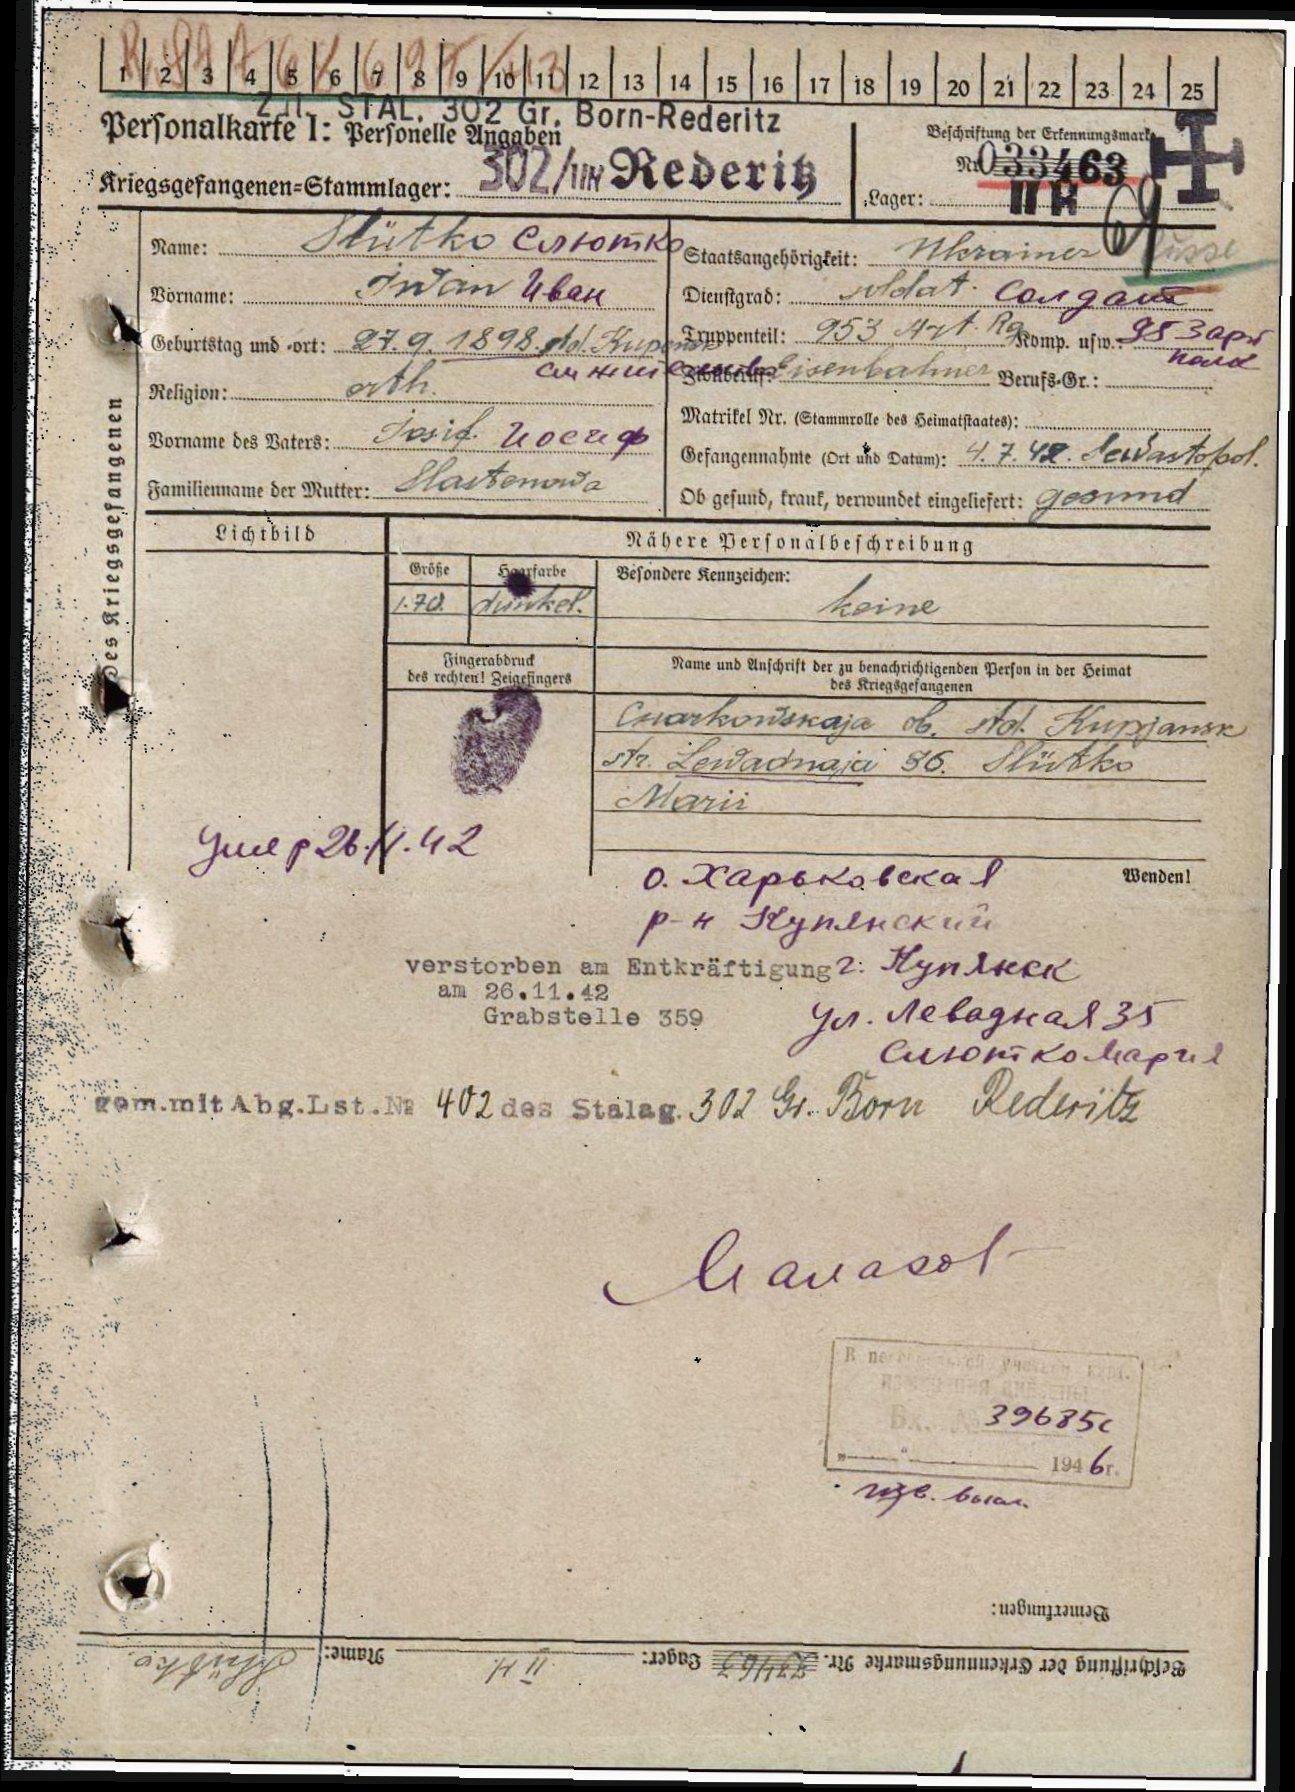 1 2 3 4 5 6 7 8 9 10 11 12 13 14 15 16 17 18 19 20 21 22 23 24 25
STAL. 302 Gr. Born-Rederitz
Personalkarte I: Personelle Angaben
Beschriftung der Erkennungsmarke
Kriegsgefangenen=Stammlager: 302/IIH Rederitz
Nr. 033463
Lager: II H
des Kriegsgefangenen
Name: Slütko Слютко
Staatsangehörigkeit: Ukrainer Russe
Vorname: Iwan Иван
Dienstgrad: soldat. Солдат
Geburtstag und -ort: 27.9.1898. std. Kupansk
Truppenteil: 953 Art. Rg Komp. usw.: 953 арт
полк
Religion: orth.
Zivilberuf: Eisenbahner Berufs-Gr.:
Vorname des Vaters: Iosif. Иосиф
Matrikel Nr. (Stammrolle des Heimatstaates):
Gefangennahme (Ort und Datum): 4.7.42. Sewastopol.
Familienname der Mutter: Slastenowa
Ob gesund, krank, verwundet eingeliefert: gesund
Lichtbild
Nähere Personalbeschreibung
Größe Haarfarbe Besondere Kennzeichen:
1.70. dunkel. keine
Fingerabdruck
des rechten! Zeigefingers
Name und Anschrift der zu benachrichtigenden Person in der Heimat
des Kriegsgefangenen
Charkowskaja ob. std. Kupjansk
str. Lewadnaja 36. Slütko
Marii
Умер 26.11.42
Wenden!
о. Харьковская
р-н Купянский
verstorben am Entkräftigung
г. Купянск
am 26.11.42
Grabstelle 359
ул. Левадная 35
Слютко Мария
gem.mit Abg.Lst.№ 402 des Stalag. 302 Gr. Born Rederitz
39685с
1946г.
Bemerkungen:
Beschriftung der Erkennungsmarke Nr. 33463 Lager: II H Name: Slütko